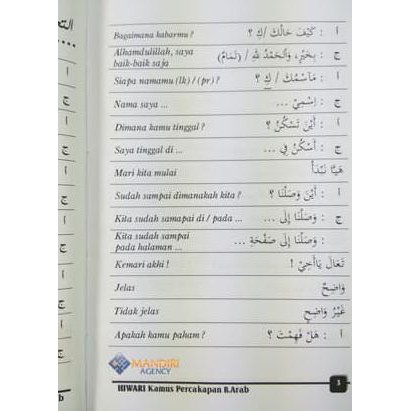 Bagaimana kabarmu ? أ : كَيْفَ حَالُكَ / كِ ؟
Alhamdulillah, saya ج : بِخَيْرٍ، وَالْحَمْدُ لِلّٰهِ / (تَمَامٌ)
baik-baik saja
Siapa namamu (lk) / (pr) ? أ : مَاسْمُكَ / كِ ؟
Nama saya ... ج : اِسْمِيْ ...
Dimana kamu tinggal ? أ : أَيْنَ تَسْكُنُ ؟
Saya tinggal di ... ج : أَسْكُنُ فِي ...
Mari kita mulai هَيَّا نَبْدَأْ
Sudah sampai dimanakah kita ? أ : أَيْنَ وَصَلْنَا ؟
Kita sudah samapai di / pada ... ج : وَصَلْنَا إِلَى ...
Kita sudah sampai : وَصَلْنَا إِلَى صَفْحَةِ ...
pada halaman ...
Kemari akhi ! تَعَالَ يَاأَخِيْ !
Jelas وَاضِحٌ
Tidak jelas غَيْرُ وَاضِحٍ
Apakah kamu paham ? أ : هَلْ فَهِمْتَ ؟
MANDIRI
AGENCY
HIWARI Kamus Percakapan B.Arab